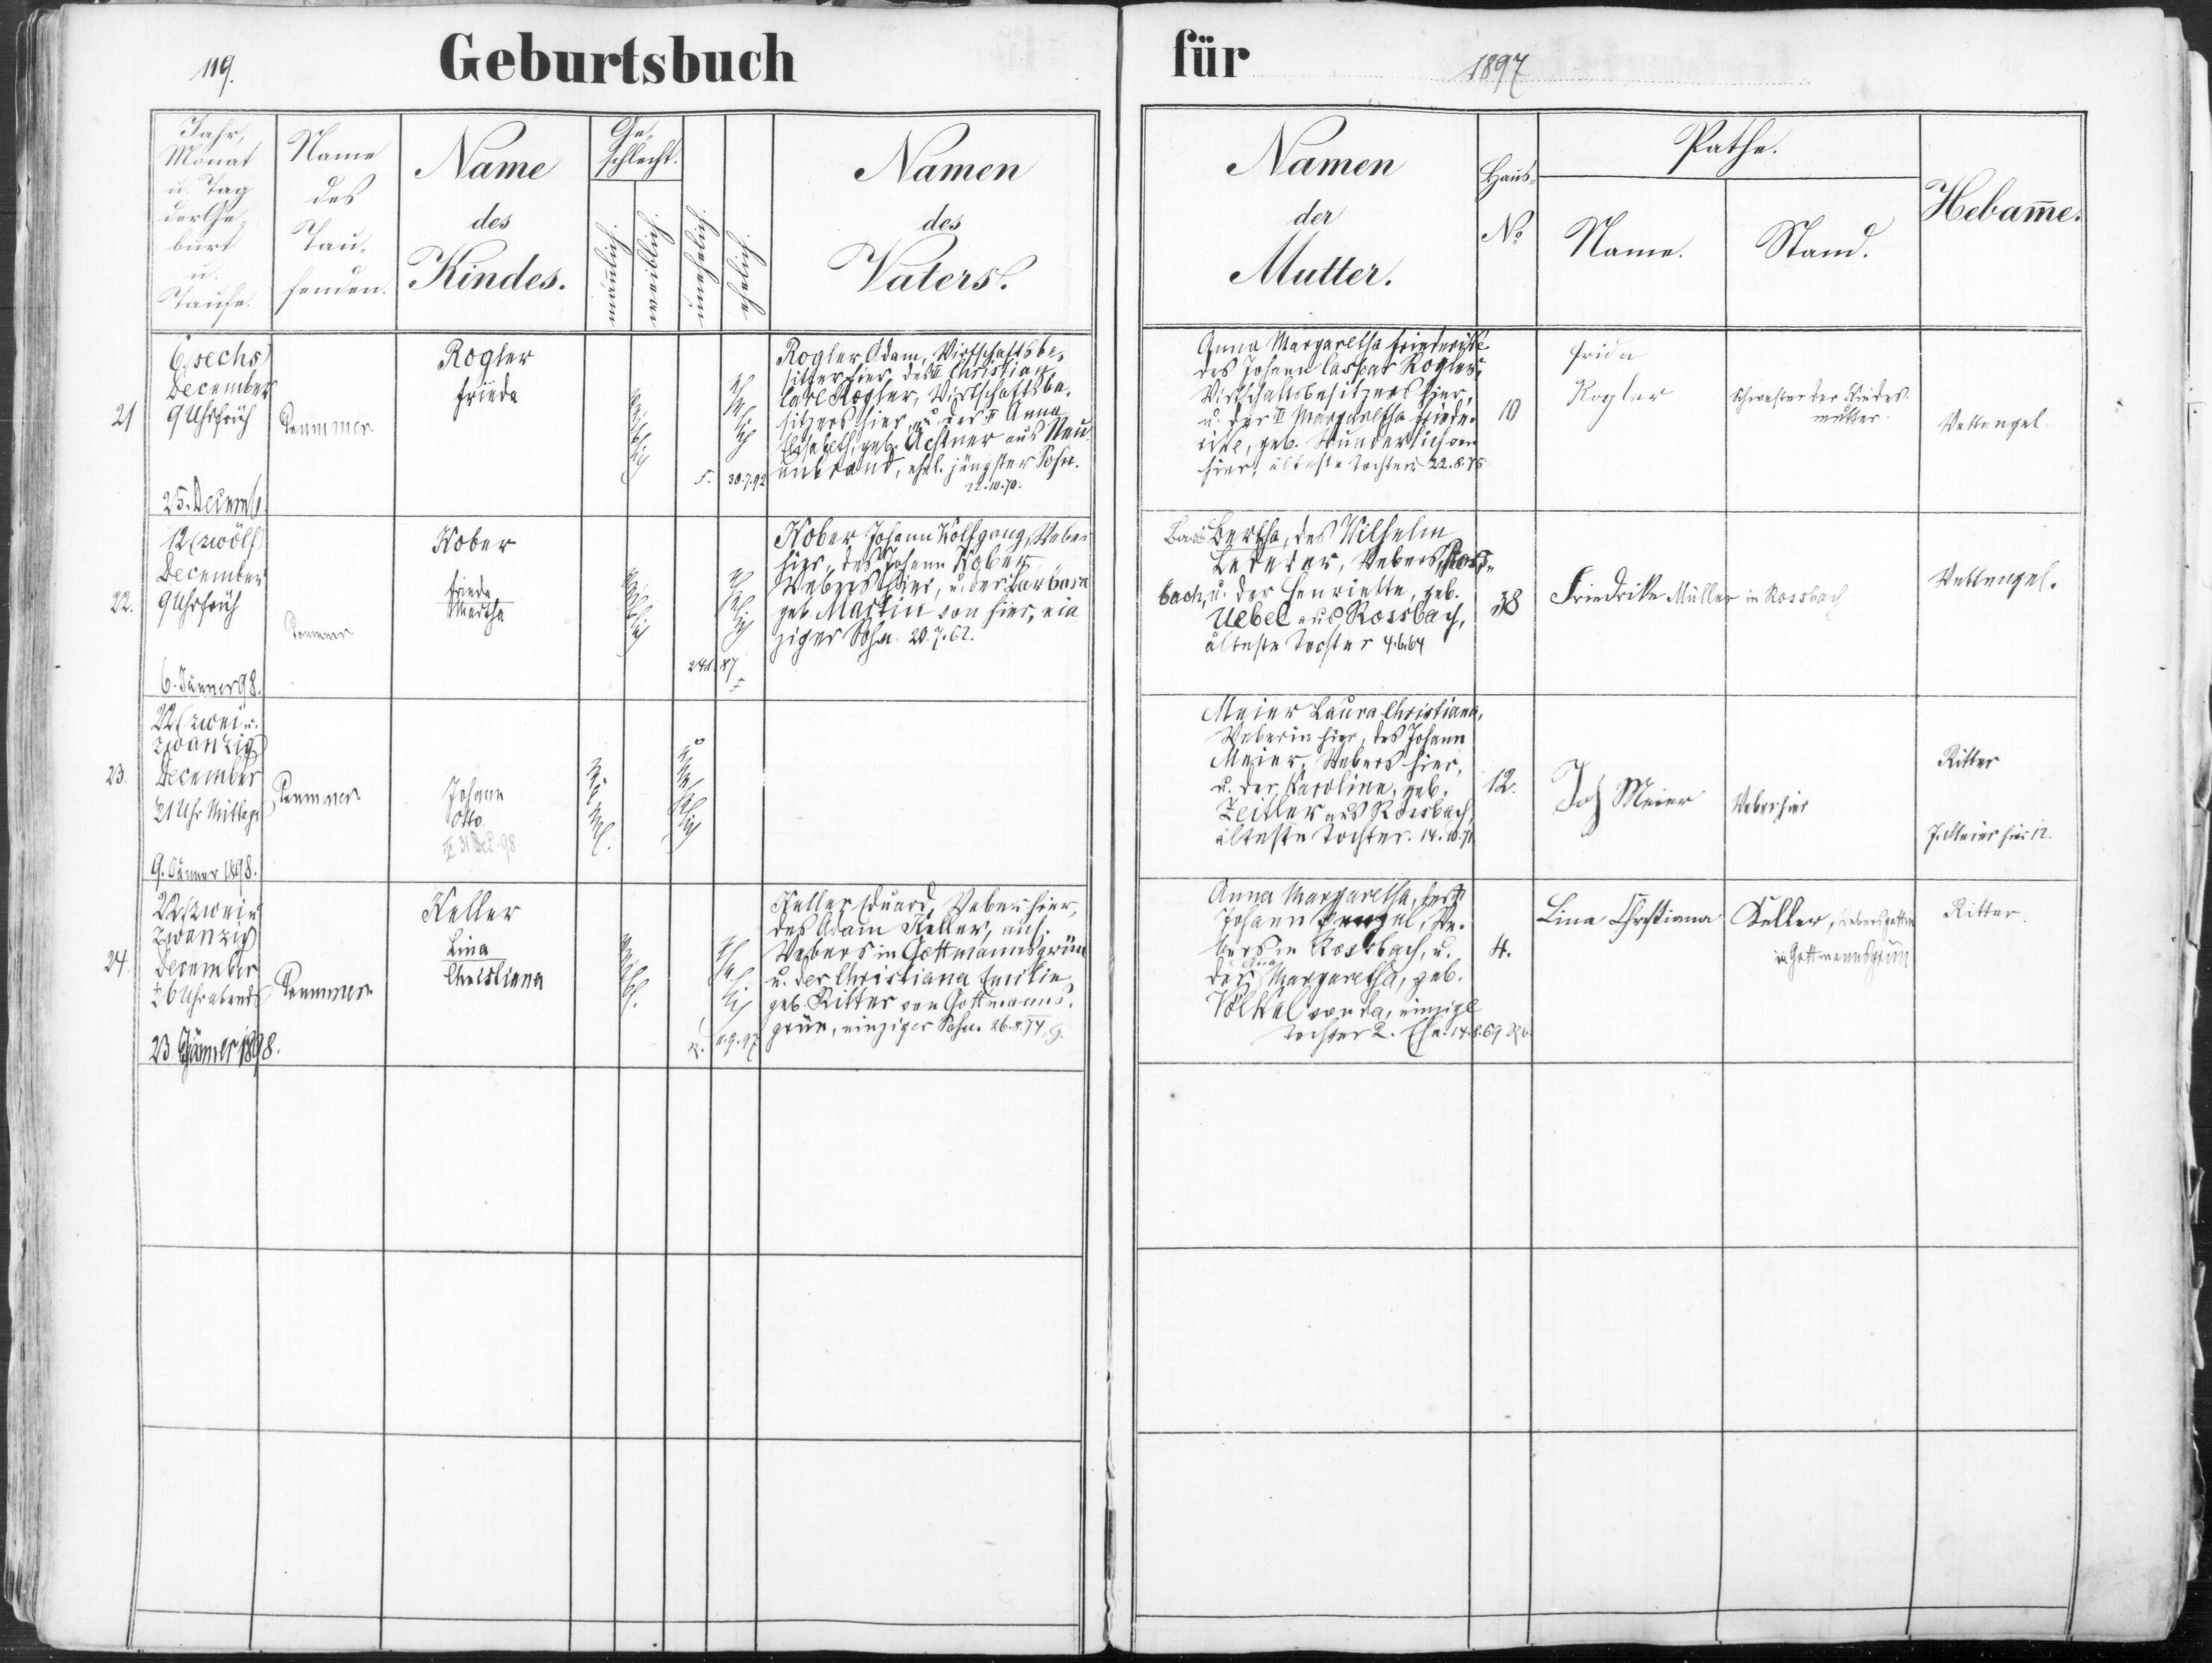 119.
Geburtsbuch
für 1897
Jahr,
Monat
u. Tag
der Ge-
burt
u.
Taufe.
Name
des
Tau-
fenden.
Name
des
Kindes.
Ge-
schlecht.
männlich.
weiblich.
unehelich.
ehelich.
Namen
des
Vaters.
Namen
der
Mutter.
Haus-
No
Pathe.
Name.
Stand.
Hebam̅e.
21
6 (sechs)
December
9 Uhr früh
25. Decemb.
Rogler
Frieda
weiblich
ehelich
30.7.92
Rogler Adam, Wirtschaftsbe-
sitzer hier, des Christian
Carl Rogler, Wirtschaftsbe-
sitzers hier, u. der Anna
Elisabeth, geb. Achtner aus Neu-
enbrand, ehel. jüngster Sohn.
22.10.70.
Anna Margaretha Friederike
des Johann Caspar Rogler,
Wirtschaftsbesitzers hier,
u. der II Margaretha Friede-
rike, geb. Wunderlich von
hier, älteste Tochter 22.8.75
10
Frida
Rogler
Schwester der Kindes-
mutter.
Vettengel.
22.
12 (zwölf)
December
9 Uhr früh
6. Jänner 98.
Kober
Frieda
Martha
weiblich
ehelich
24.1. 87
Kober Johann Wolfgang, Weber
hier, des Johann Kober
Webers hier, u. der Barbara
geb. Martin von hier, ein
ziger Sohn. 20.7.62.
Bertha, des Wilhelm
Lederer, Webers, Ross-
bach, u. der Henriette, geb.
Uebel aus Rossbach,
älteste Tochter 4.6.64
38
Friedrike Müller in Rossbach
Vettengel.
23.
22 (zwei u.
zwanzig)
December
Uhr Mittags
9. Jänner 1898.
Johann
Otto
31 Dez. 98.
männl.
unehelich
Meier Laura Christiana,
Weberin hier, des Johann
Meier, Webers hier,
u. der Karoline, geb.
Zeitler aus Rossbach,
älteste Tochter. 14.10.71.
12.
Joh Meier
Weber hier
Ritter
J. Meier hier 12.
24.
22 (zwei u
zwanzig)
December
½6 Uhr abends
23 Jänner 1898.
Keller
Lina
Christiana
weibl.
ehelich
Keller Eduard, Weber hier,
des Adam Keller, auch
Webers in Gottmannsgrün
u. der Christiana Emilie,
geb. Ritter von Gottmanns-
grün, einziger Sohn.
Anna Margaretha, des
Johann We-
bers in Rossbach, u.
der Margaretha, geb.
Völkel von da, einzige
Tochter 2. Ehe. 14.8.69
4.
Lina Christiana
Keller, Webersgattin
in Gottmannsgrün
Ritter.